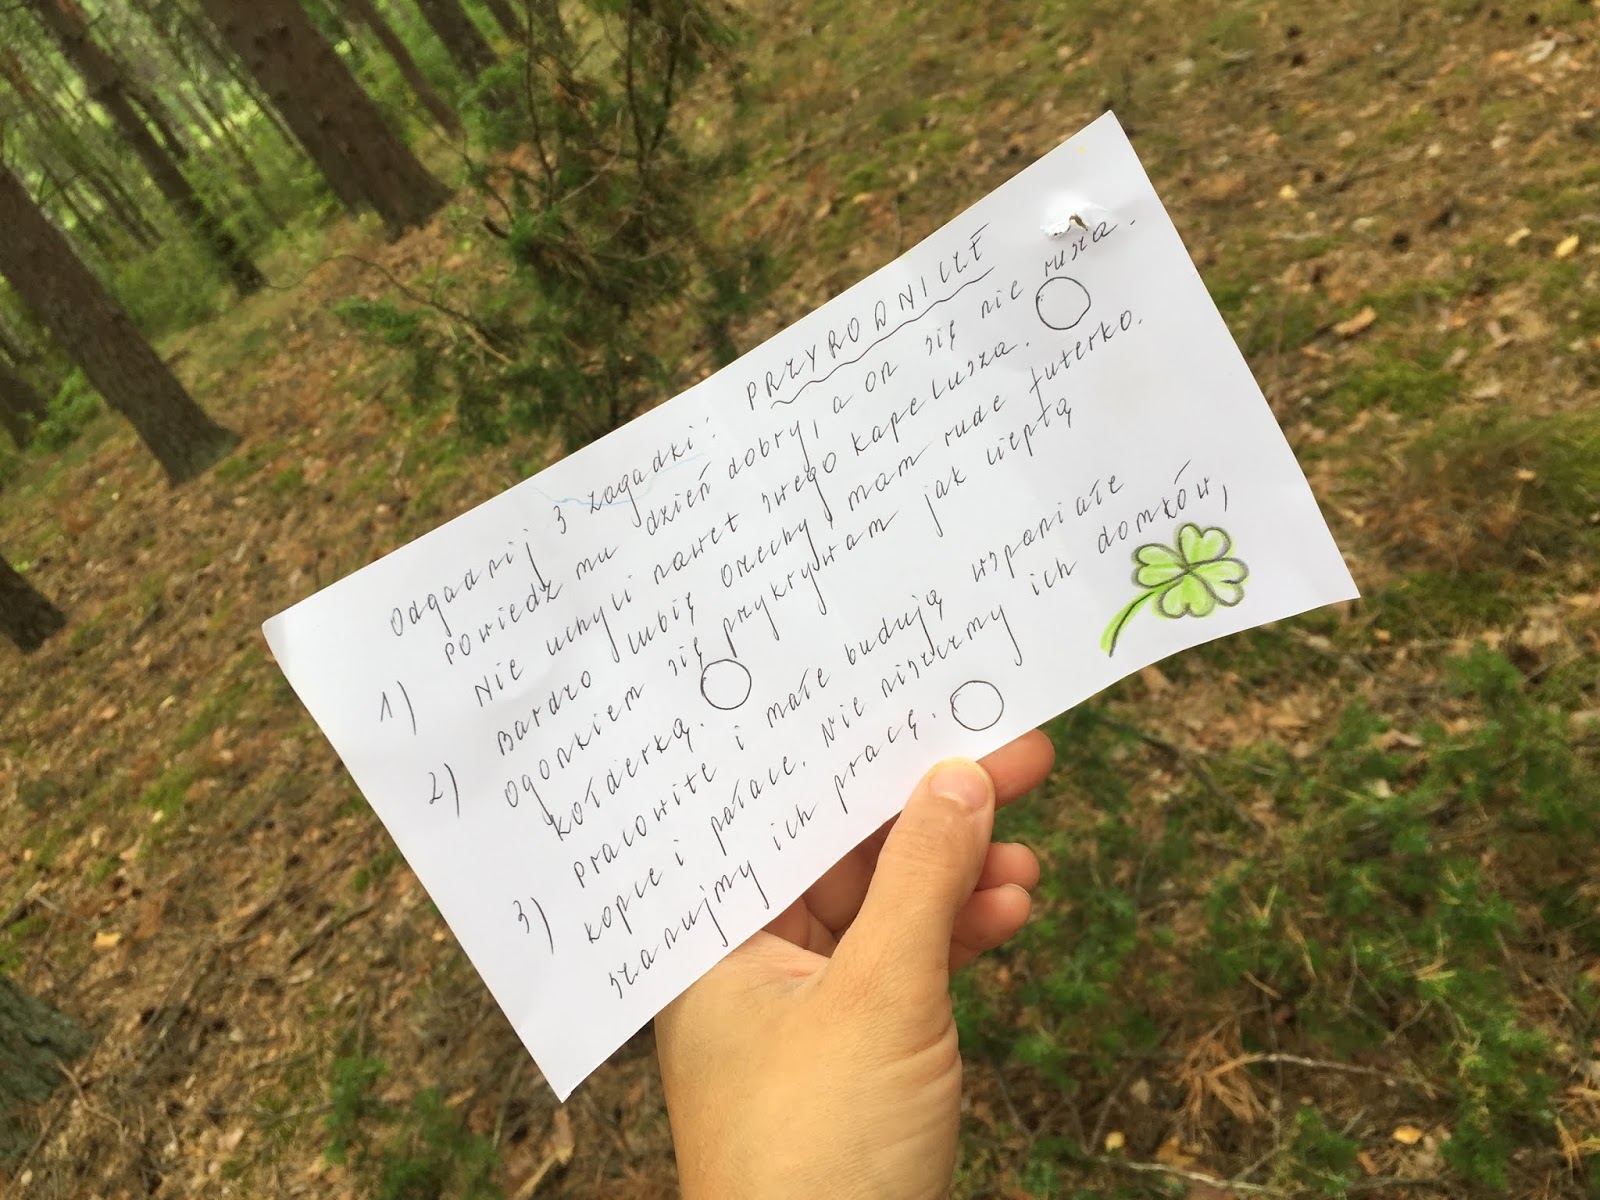 Odgadnij 3 zagadki: PRZYRODNICZE
1) Powiedz mu dzień dobry, a on się nie rusza.
Nie uchyli nawet swego kapelusza.
2) Bardzo lubię orzechy, mam rude futerko.
Ogonkiem się przykrywam jak ciepłą
kołderką.
3) pracowite i małe budują wspaniałe
kopce i pałace. Nie niszczmy ich domków,
szanujmy ich pracę.